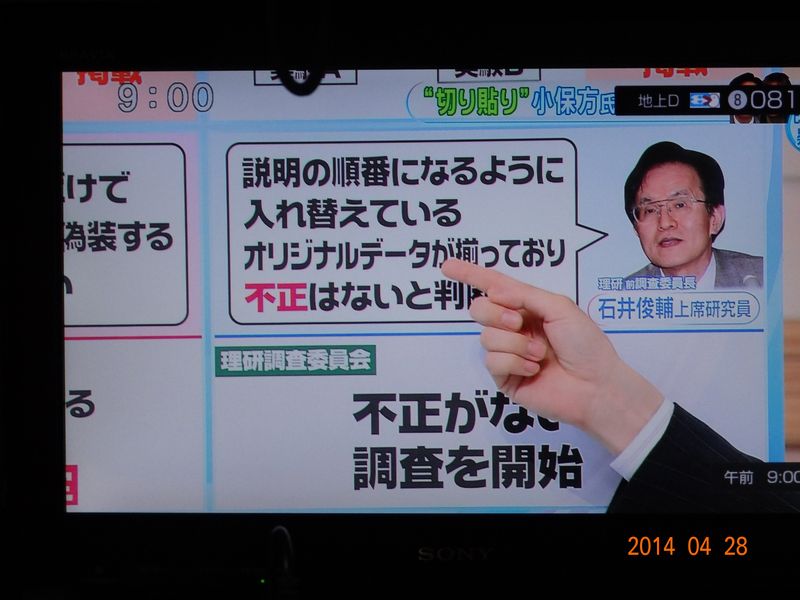 BRAVIA
掲載
実験A
実験B
掲載
9:00
“切り貼り”小保方氏
地上D
8
081
けで
偽装する
説明の順番になるように
入れ替えている
オリジナルデータが揃っており
不正はないと判断
理研 前調査委員長
石井俊輔上席研究員
る
理研調査委員会
不正がない
調査を開始
午前 9:00
SONY
2014 04 28